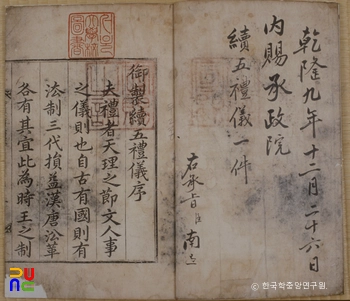 乾隆九年十二月二十六日
內賜承政院
續五禮儀一件
右承旨臣南
御製續五禮儀序
夫禮者天理之節文人事
之儀則也自古有國則有
法制三代損益漢唐沿革
各有其宜此為時王之制
© 한국학중앙연구원